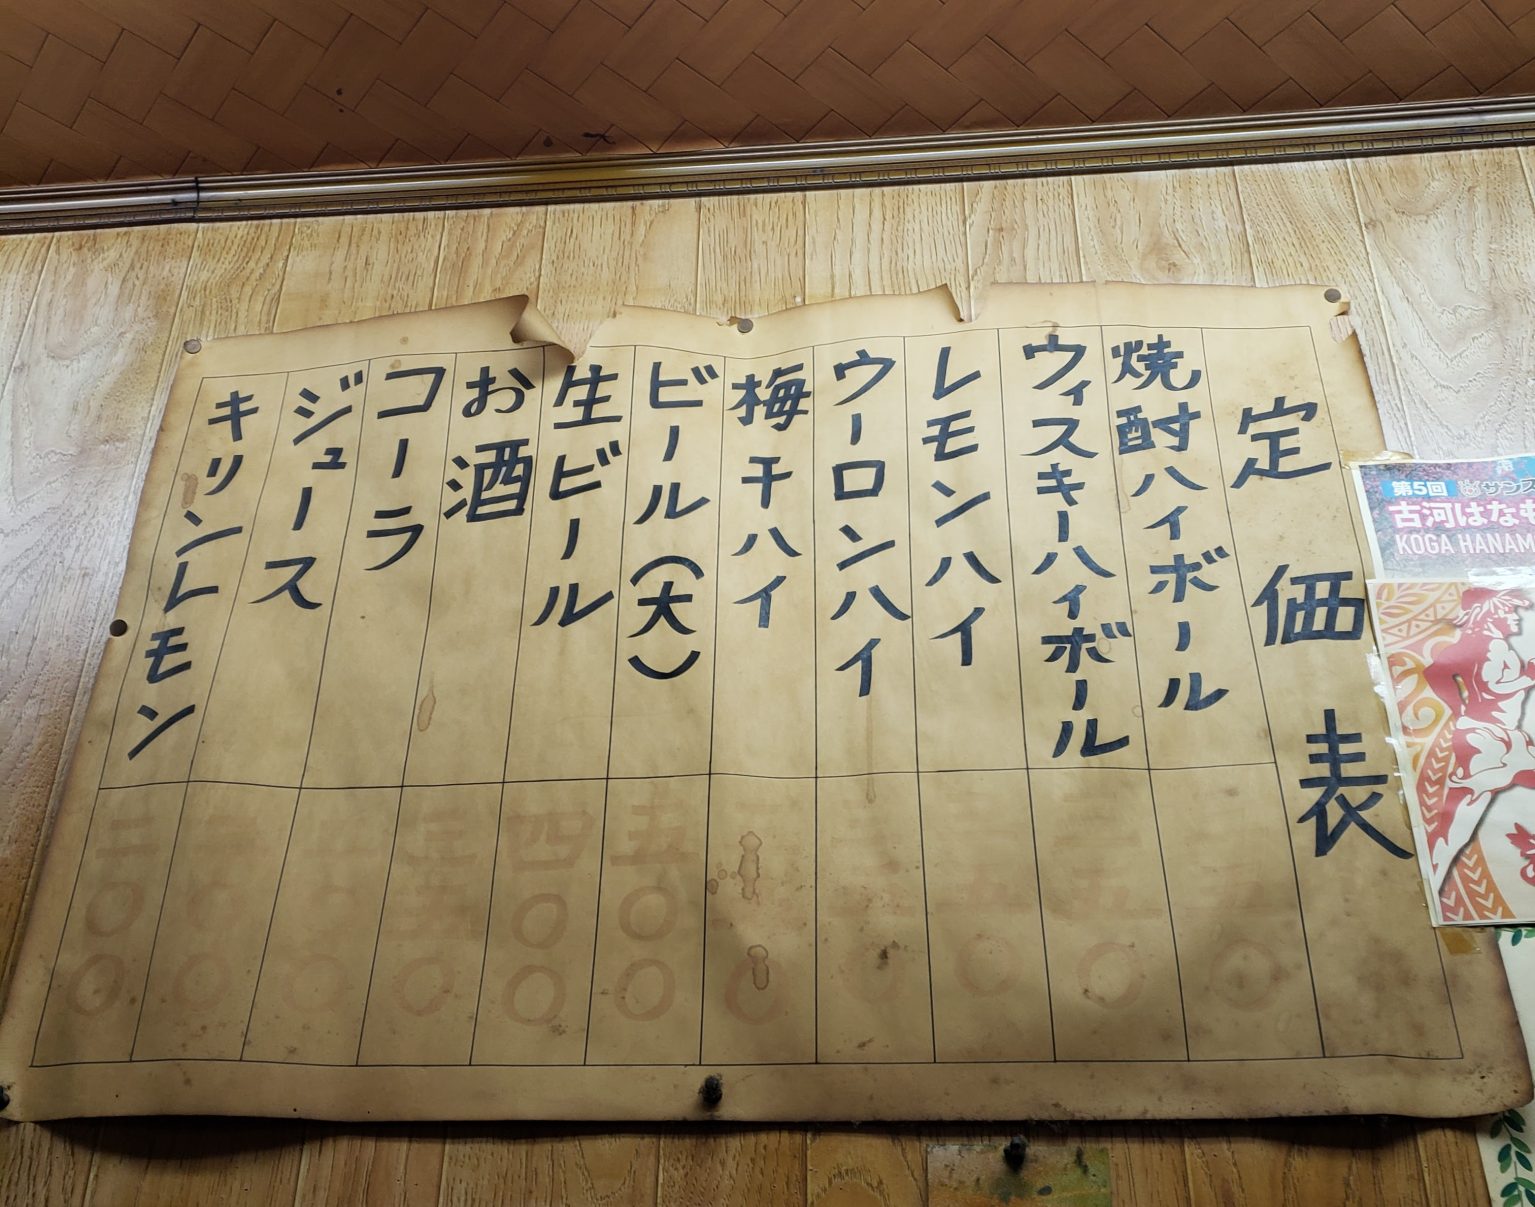 定価表
焼酎ハイボール
ウィスキーハイボール
レモンハイ
ウーロンハイ
梅干ハイ
ビール(大)
五〇〇
生ビール
四〇〇
お酒
三五〇
コーラ
ジュース
キリンレモン
二〇〇
第5回
サンス
古河はなも
KOGA HANAM